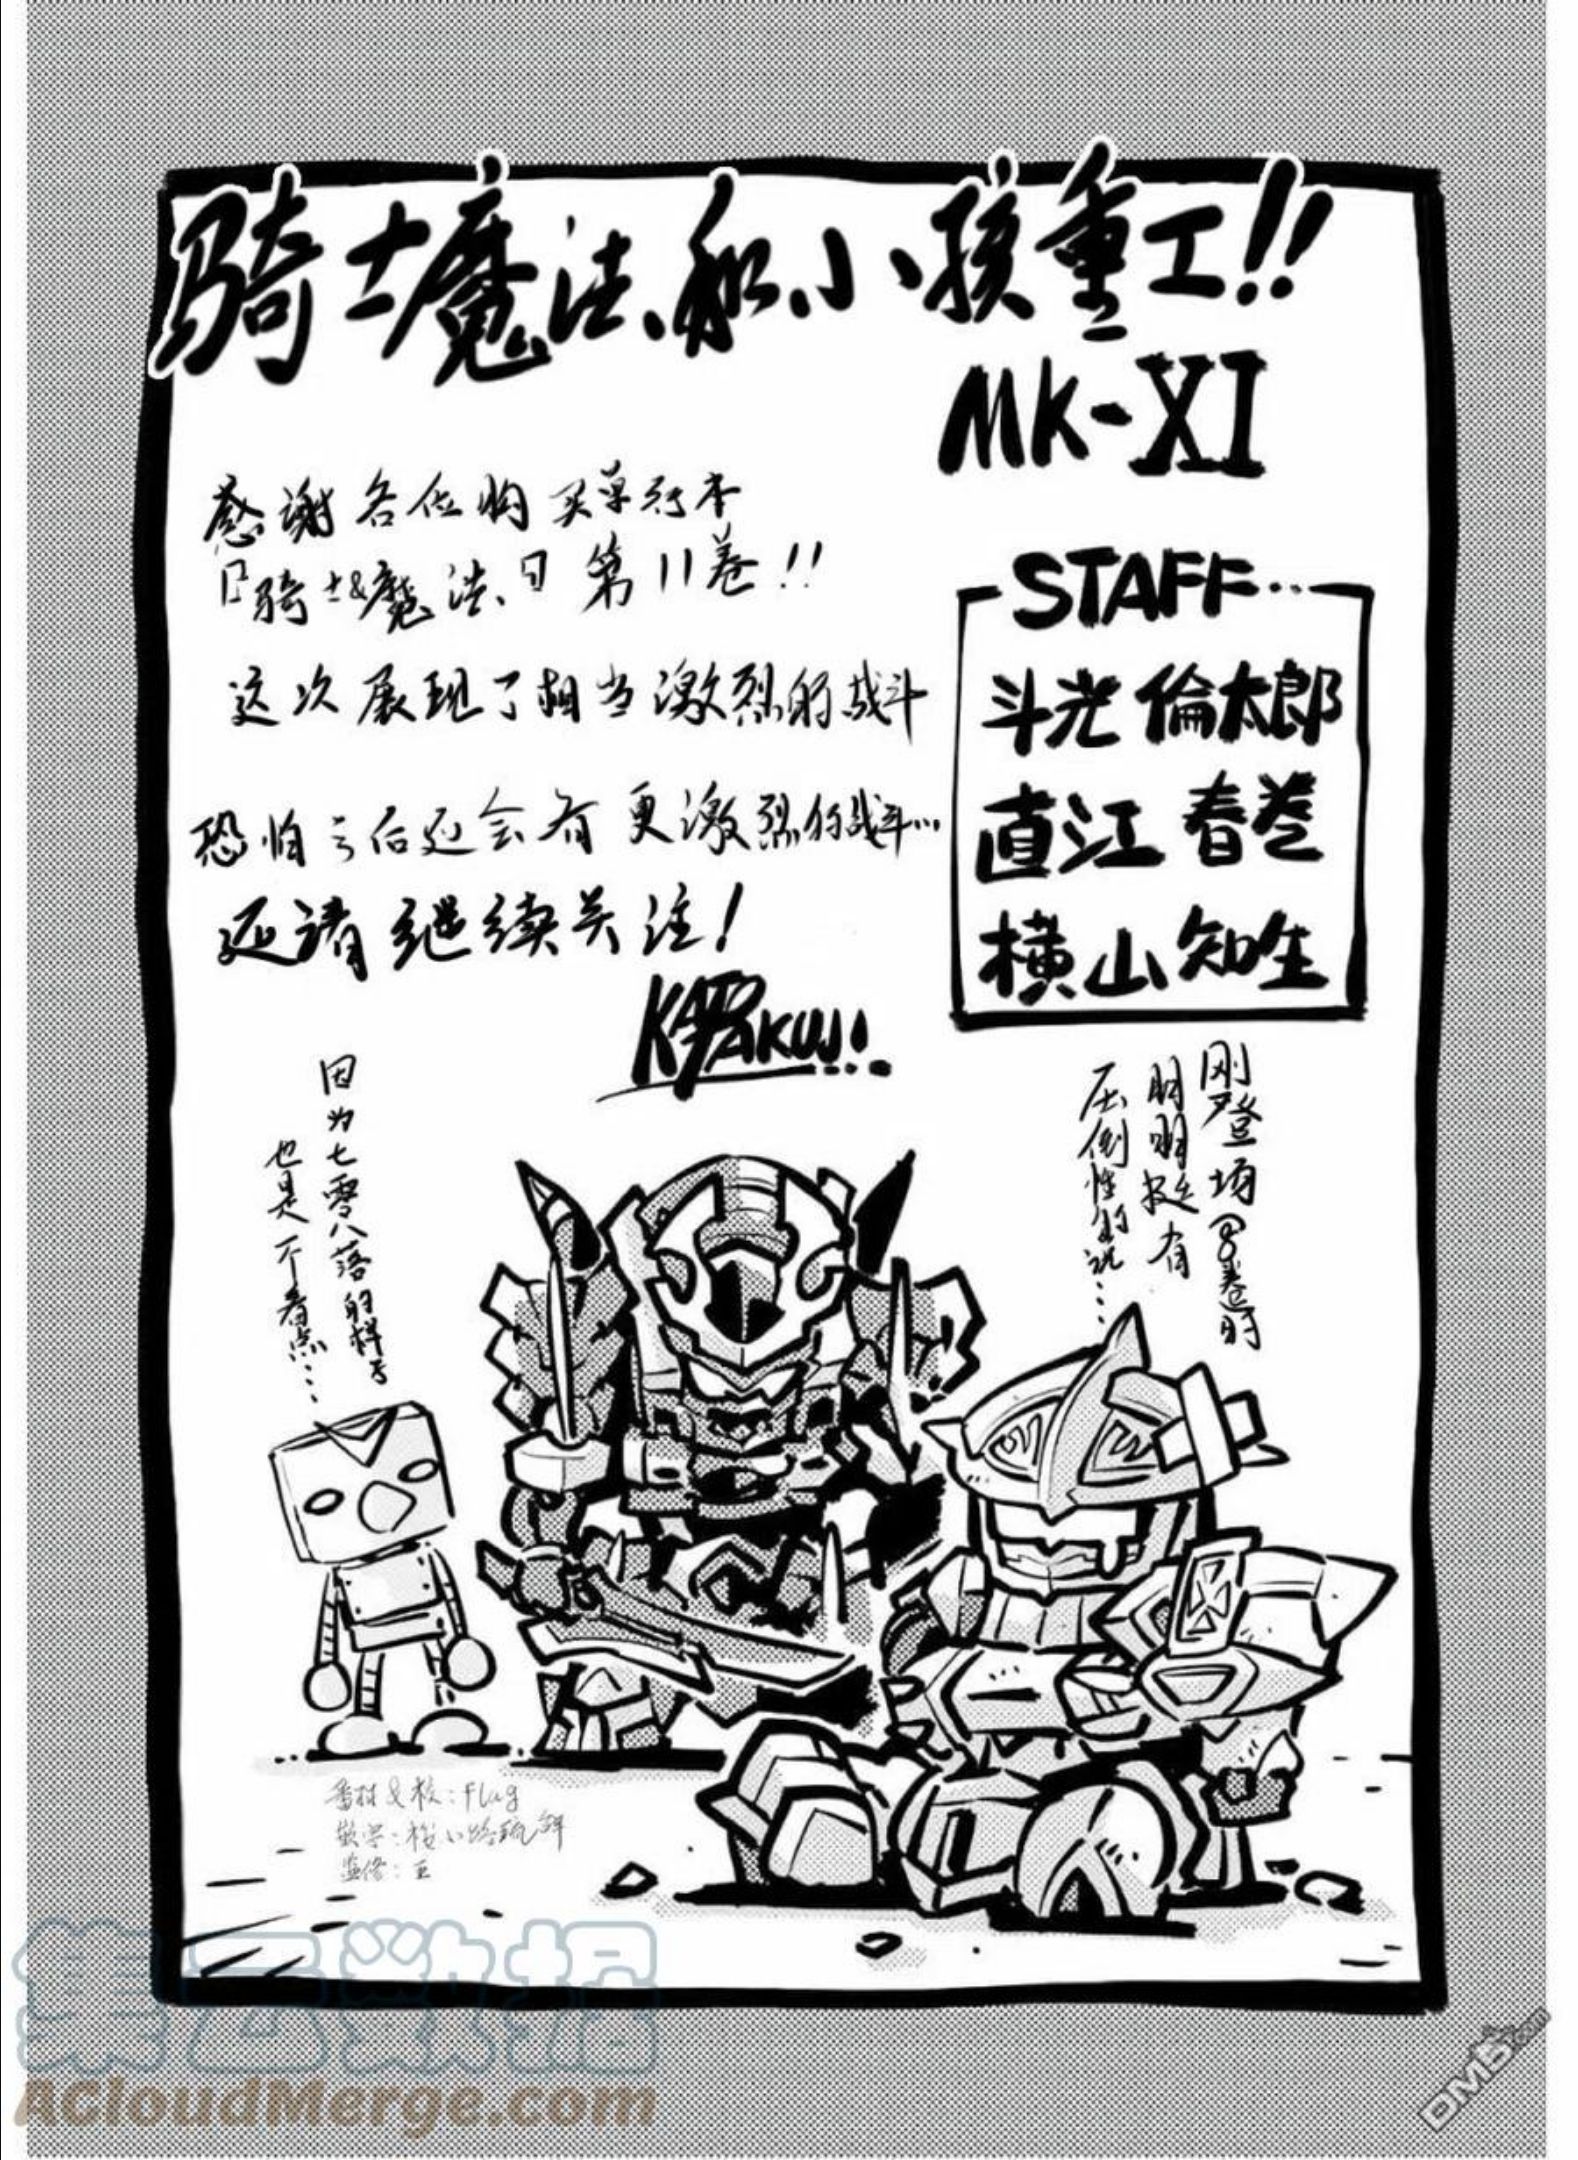 骑士魔法和小孩重工!!
MK-XI
感谢各位购买单行本
『骑士&魔法』第11卷!!
这次展现了相当激烈的战斗
恐怕之后还会有更激烈的战斗…
还请继续关注!
STAFF…
斗光 倫太郎
直江 春巻
横山 知生
刚登场8卷时
明明挺有
压倒性的说…
因为七零八落的样子
也是一个看点…
&校:Flag
监修:豆
集云数据
ACloudMerge.com
DM5.com